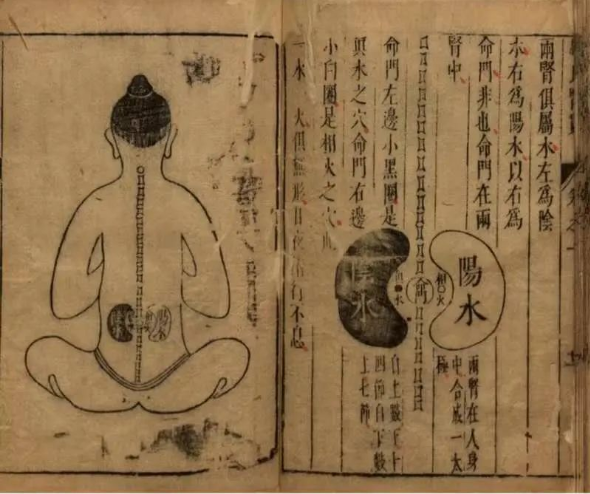 兩腎俱屬水左爲陰
水右爲陽水以右爲
命門非也命門在兩
腎中
陽水
相火
命
水
陰水
兩腎在人身
中合成一太
極
自上數下十
四節自下數
上七節
命門左邊小黑圈是
眞水之穴命門右邊
小白圈是相火之穴此
一水 火俱無形日夜 行不息